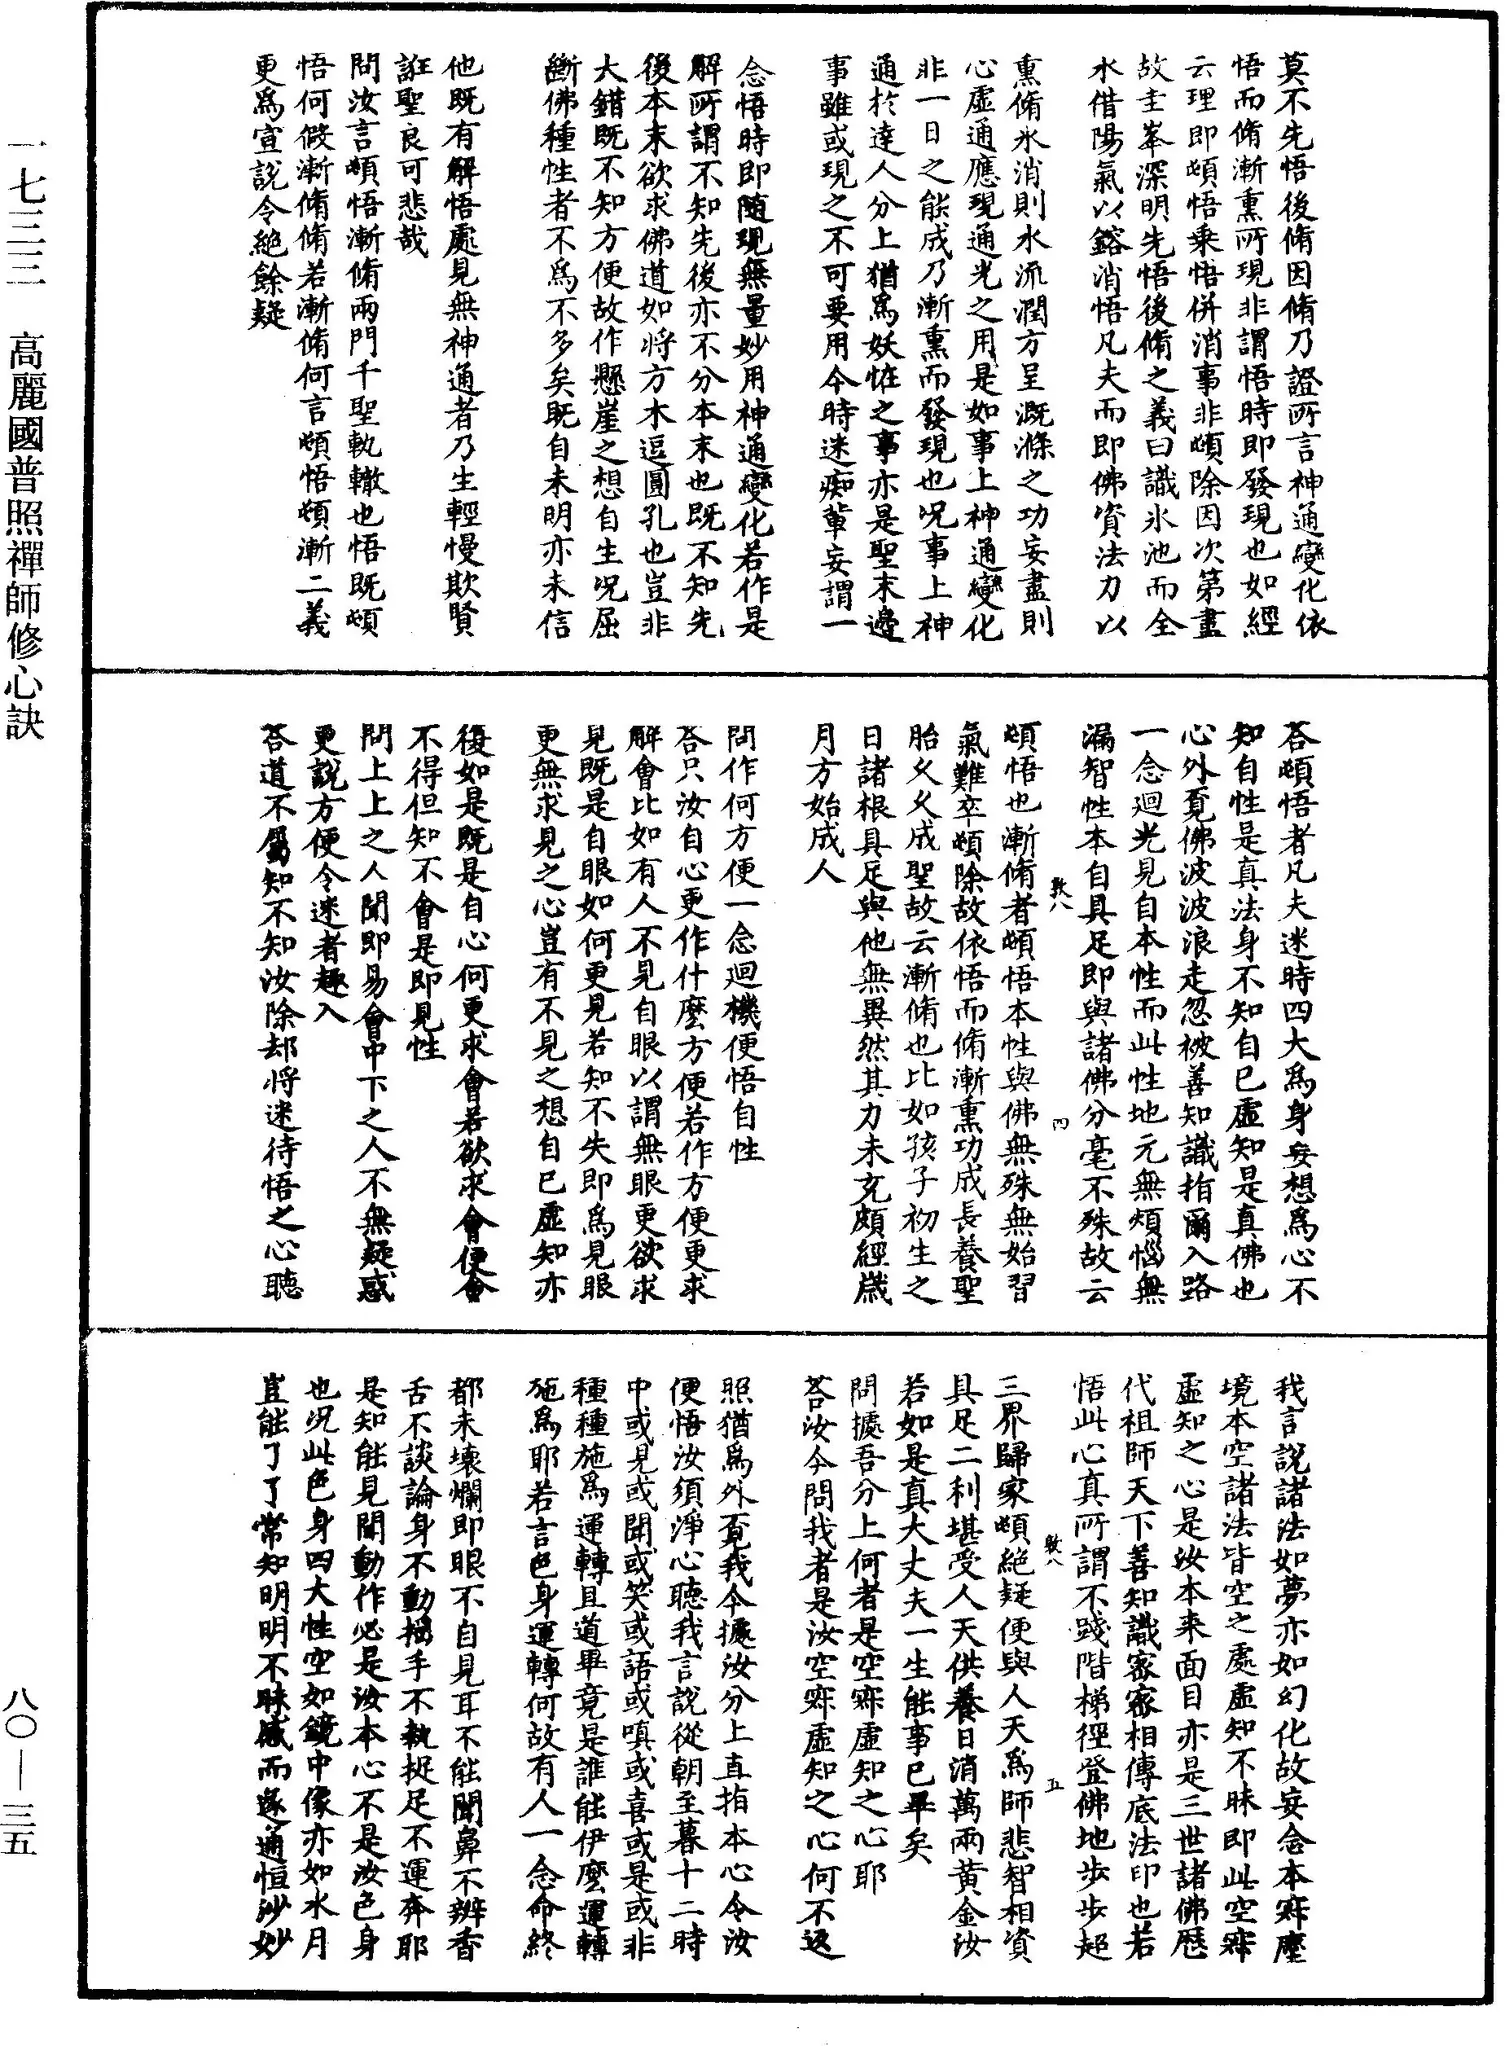 莫不先悟後脩因脩乃證所言神通變化依
悟而脩漸熏所現非謂悟時即發現也如經
云理即頓悟乘悟併消事非頓除因次第盡
故圭峯深明先悟後脩之義曰識氷池而全
水借陽氣以鎔消悟凡夫而即佛資法力以
熏脩氷消則水流潤方呈溉滌之功妄盡則
心虛通應現通光之用是如事上神通變化
非一日之能成乃漸熏而發現也况事上神
通於達人分上猶爲妖恠之事亦是聖末邊
事雖或現之不可要用今時迷痴輩妄謂一
念悟時即隨現無量妙用神通變化若作是
解所謂不知先後亦不分本末也既不知先
後本末欲求佛道如將方木逗圓孔也豈非
大錯既不知方便故作懸崖之想自生况屈
斷佛種性者不爲不多矣既自未明亦未信
他既有解悟處見無神通者乃生輕慢欺賢
誑聖良可悲哉
問汝言頓悟漸脩兩門千聖軌轍也悟既頓
悟何假漸脩脩若漸脩何言頓悟頓漸二義
更爲宣說令絶餘疑
荅頓悟者凡夫迷時四大爲身妄想爲心不
知自性是真法身不知自己虛知是真佛也
心外覔佛波波浪走忽被善知識指爾入路
一念迴光見自本性而此性地元無煩惱無
漏智性本自具足即與諸佛分毫不殊故云
敦八
四
頓悟也漸脩者頓悟本性與佛無殊無始習
氣難卒頓除故依悟而脩漸熏功成長養聖
胎久久成聖故云漸脩也比如孩子初生之
日諸根具足與他無異然其力未充頗經歲
月方始成人
問作何方便一念迴機便悟自性
荅只汝自心更作什麽方便若作方便更求
解會比如有人不見自眼以謂無眼更欲求
見既是自眼如何更見若知不失即爲見眼
更無求見之心豈有不見之想自己虛知亦
復如是既是自心何更求會若欲求會便會
不得但知不會是即見性
問上上上之人聞即易會中下之人不無疑惑
更說方便令迷者趣入
荅道不屬知不知汝除却將迷待悟之心聽
我言說諸法如夢亦如幻化故妄念本寂塵
境本空諸法皆空之處虛知不昧即此空寂
虛知之心是汝本來面目亦是三世諸佛歷
代祖師天下善知識密密相傳底法印也若
悟此心真所謂不踐階梯徑登佛地步步超
敦八
五
三界歸家頓絶疑便與人天爲師悲智相資
具足二利堪受人天供養日消萬兩黃金汝
若如是真大丈夫一生能事已畢矣
問據吾分上何者是空寂虛知之心耶
荅汝今問我者是汝空寂虛知之心何不返
照猶爲外覔我今據汝分上直指本心令汝
便悟汝須淨心聽我言說從朝至暮十二時
中或見或聞或笑或語或嗔或喜或是或非
種種施爲運轉且道畢竟是誰能伊麽運轉
施爲耶若言色身運轉何故有人一念命終
都未壞爛即眼不自見耳不能聞鼻不辨香
舌不談論身不動搖手不執捉足不運奔耶
是知能見聞動作必是汝本心不是汝色身
也况此色身四大性空如鏡中像亦如水月
豈能了了常知明明不昧感而遂通恒沙妙
一七三三　高麗國普照禪師修心訣
八〇—三五